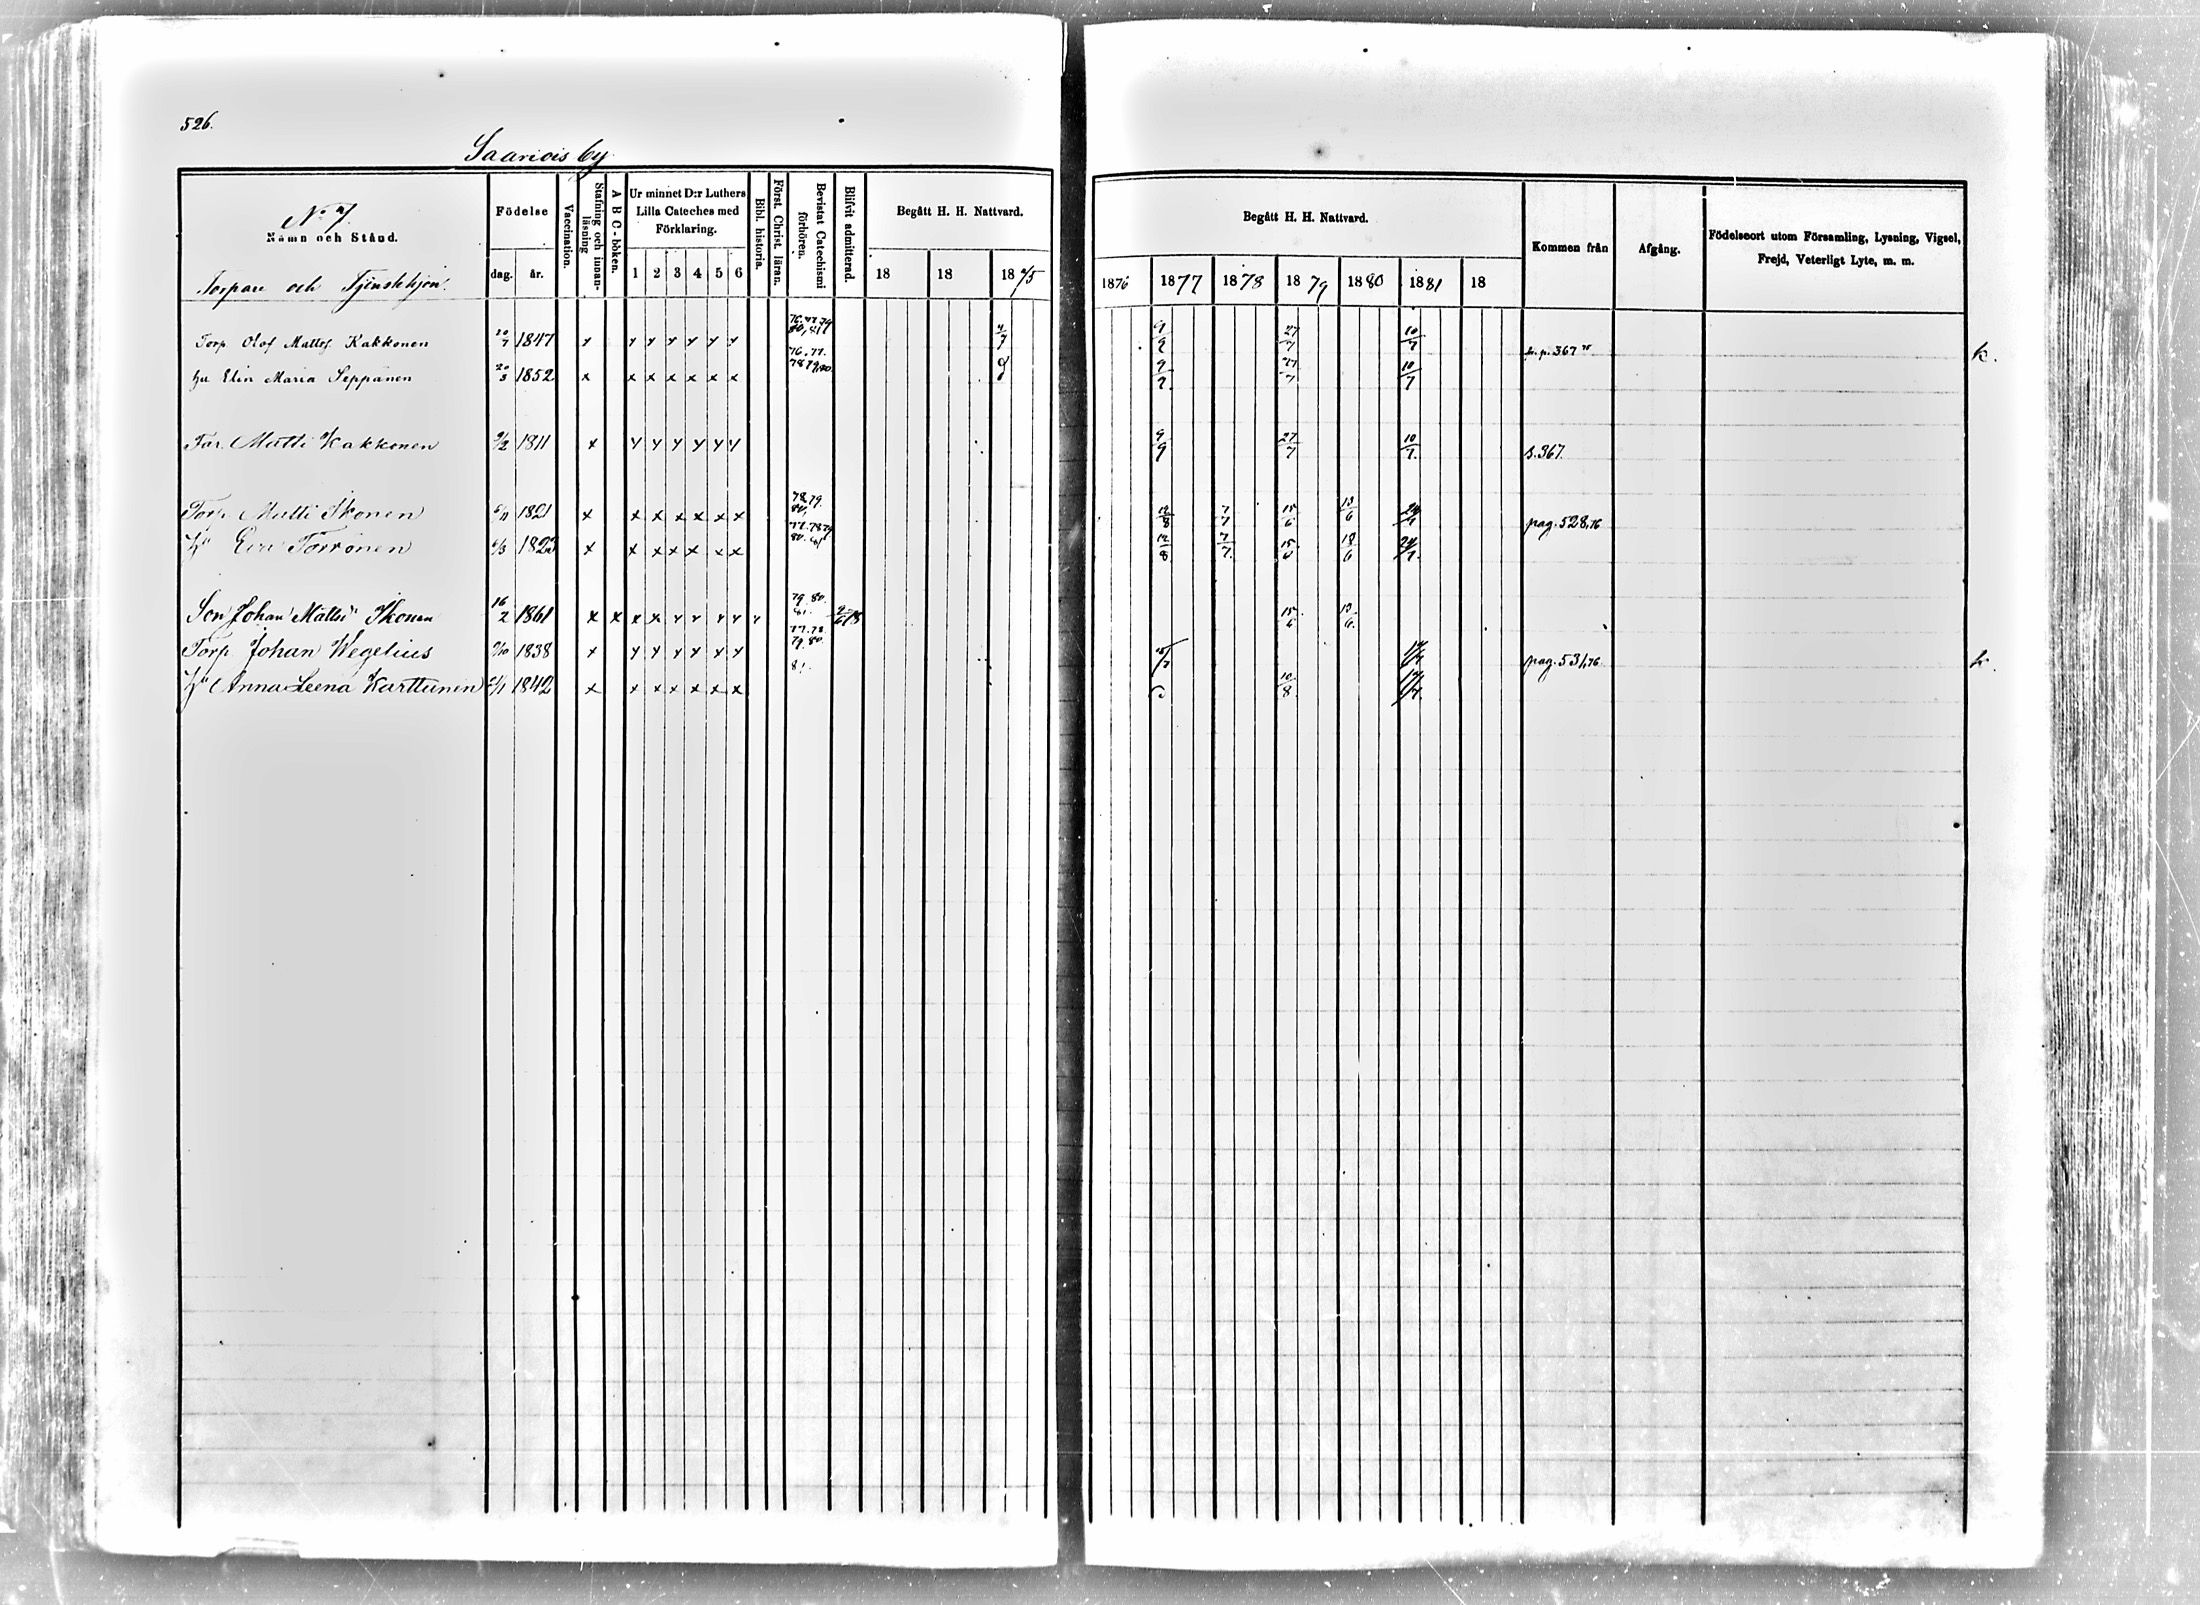 526.
Saariois by
No 7.
Namn och Stånd.
Torpare och Tjenstehjon.
Födelse
dag. år.
Vaccination.
Stafning och innanläsning
A B C-boken.
Ur minnet D:r Luthers Lilla Cateches med Förklaring.
1 2 3 4 5 6
Bibl. historia.
Först. Christ. läran.
Bevistat Catechismi förhören.
Blifvit admitterad.
Begått H. H. Nattvard.
18 18 1875
Begått H. H. Nattvard.
1876 1877 1878 1879 1880 1881 18
Kommen från
Afgång.
Födelseort utom Församling, Lysning, Vigsel, Frejd, Veterligt Lyte, m. m.
Torp. Olof Mattsf. Kakkonen 20/7 1847 x x x x x x x 9/9 27/7 10/7 367 k.
hu Elin Maria Seppänen 20/3 1852 x x x x x x x 76.77. 9/9 27/7 10/7
Far. Matti Kakkonen 9/2 1811 x x x x x x x 9/9 27/7 10/7 s.367.
Torp. Matti Ikonen 6/11 1821 x x x x x x x 78.79. 12/8 7/7 15/6 13/6 24/7 pag. 528,76
hu Eva Torronen 6/3 1823 x x x x x x x 77.78.79 80.81 12/8 7/7 15/6 13/6 24/7
Son Johan Mattsn Ikonen 16/2 1861 x x x x x x x x 79.80. 81. 15/6 13/6
Torp. Johan Wegelius 1838 x x x x x x x 77.78. 79.80. 81. pag. 531,76.
hu Anna Leena Karttunen 1842 x x x x x x x 10/8